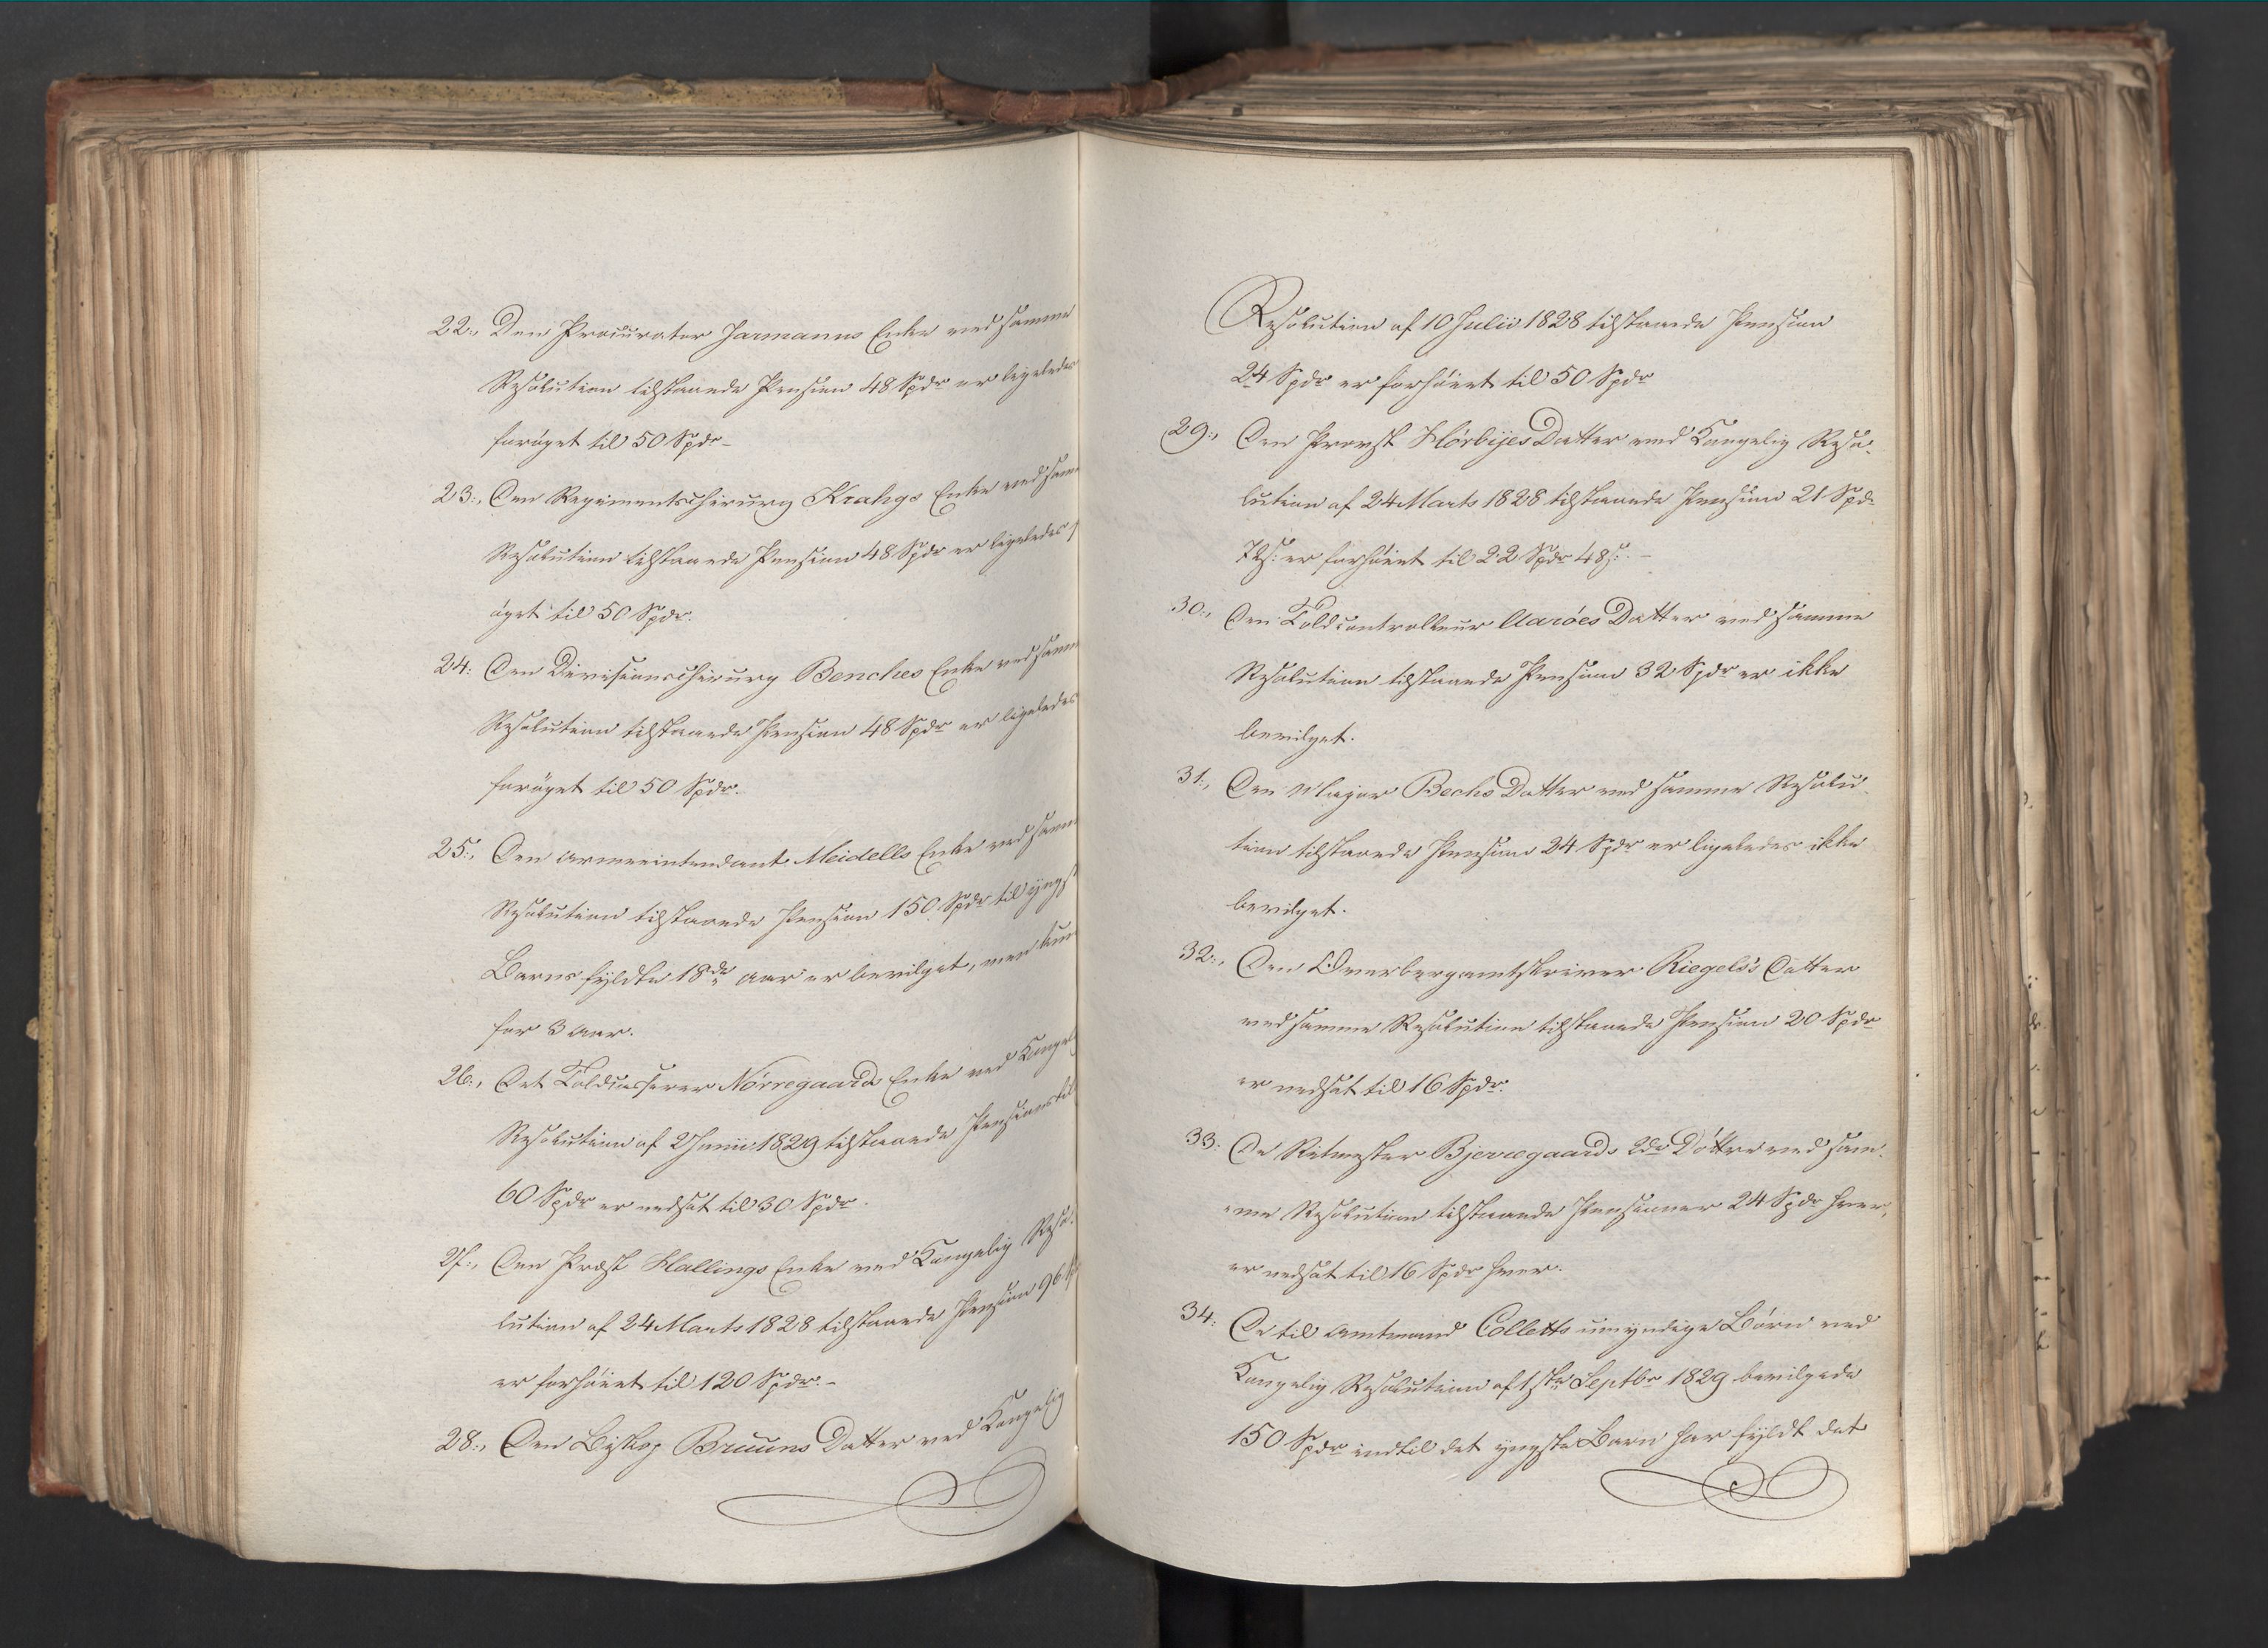 22., Den Procurator Jarmanns Enke ved samme
Resolution tilstaaede Pension 48 Spdr er ligeledes
forøget til 50 Spdr –
23., Den Regimentschirurg Krahgs Enke ved samme
Resolution tilstaaede Pension 48 Spdr er ligeledes
øget til 50 Spdr.
24. Den Divisionschirurg Benches Enke ved samme
Resolution tilstaaede Pension 48 Spdr er ligeledes
forøget til 50 Spdr.
25., Den Armeeintendant Meidells Enke ved samme
Resolution tilstaaede Pension 150 Spdr til yngste
Barns fyldte 18de Aar er bevilget, men kun
for 3 Aar.
26., Det Toldcasserer Nørregaards Enke ved Kongel
Resolution af 2 Junii 1829 tilstaaede Pensionstil
60 Spdr er nedsat til 30 Spdr.
27., Den Præst Hallings Enke ved Kongelig Reso-
lution af 24 Marts 1828 tilstaaede Pension 96
er forhøiet til 120 Spdr. –
28., Den Biskop Bruuns Datter ved Kongelig
Resolution af 10 Julii 1828 tilstaaede Pension
24 Spdr er forhøiet til 50 Spdr
29., Den Provst Hørbyes Datter ved Kongelig Reso-
lution af 24 Marts 1828 tilstaaede Pension 21 Spd
72 s: er forhøiet til 22 Spdr 48 s. –
30., Den Toldcontrolleur Aarøes Datter ved samme
Resolution tilstaaede Pension 32 Spdr er ikke
bevilget.
31., Den Major Bechs Datter ved samme Resolu-
tion tilstaaede Pension 24 Spdr er ligeledes ikke
bevilget.
32., Den Overbergamtskriver Riegels's Datter
ved samme Resolution tilstaaede Pension 20 Spdr
er nedsat til 16 Spdr.
33. De Ritmester Bjerregaards 2de Døttre ved sam-
me Resolution tilstaaede Pensioner 24 Spdr hver,
er nedsat til 16 Spdr hver.
34. De til Amtmand Colletts umyndige Børn ved
Kongelig Resolution af 1ste Septbr 1829 bevilgede
150 Spdr indtil det yngste Barn har fyldt det